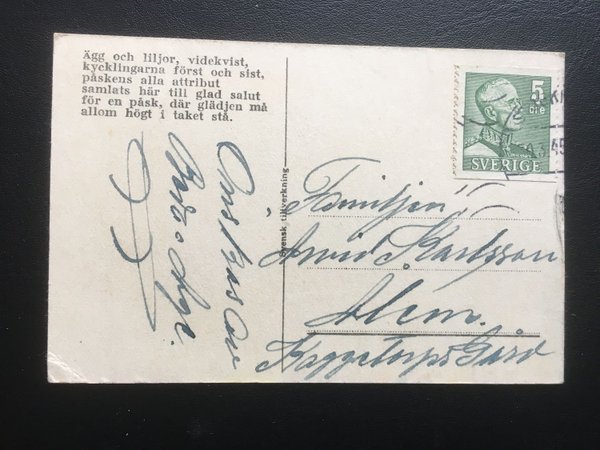 Ägg och liljor, videkvist,
kycklingarna först och sist,
påskens alla attribut
samlats här till glad salut
för en påsk, där glädjen må
allom högt i taket stå.
Svensk tillverkning
5
öre
SVERIGE
45
Familjen
Arvid Karlsson
Ålem.
Kaggetorps Gård
Önskas av